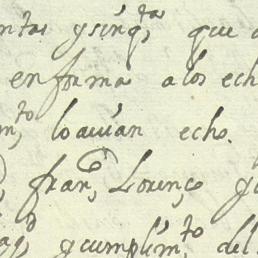 ntas ysinqta, que
en forma a los ech
mto, lo auian echo.
franco, Lorenço
y cumplimto, del